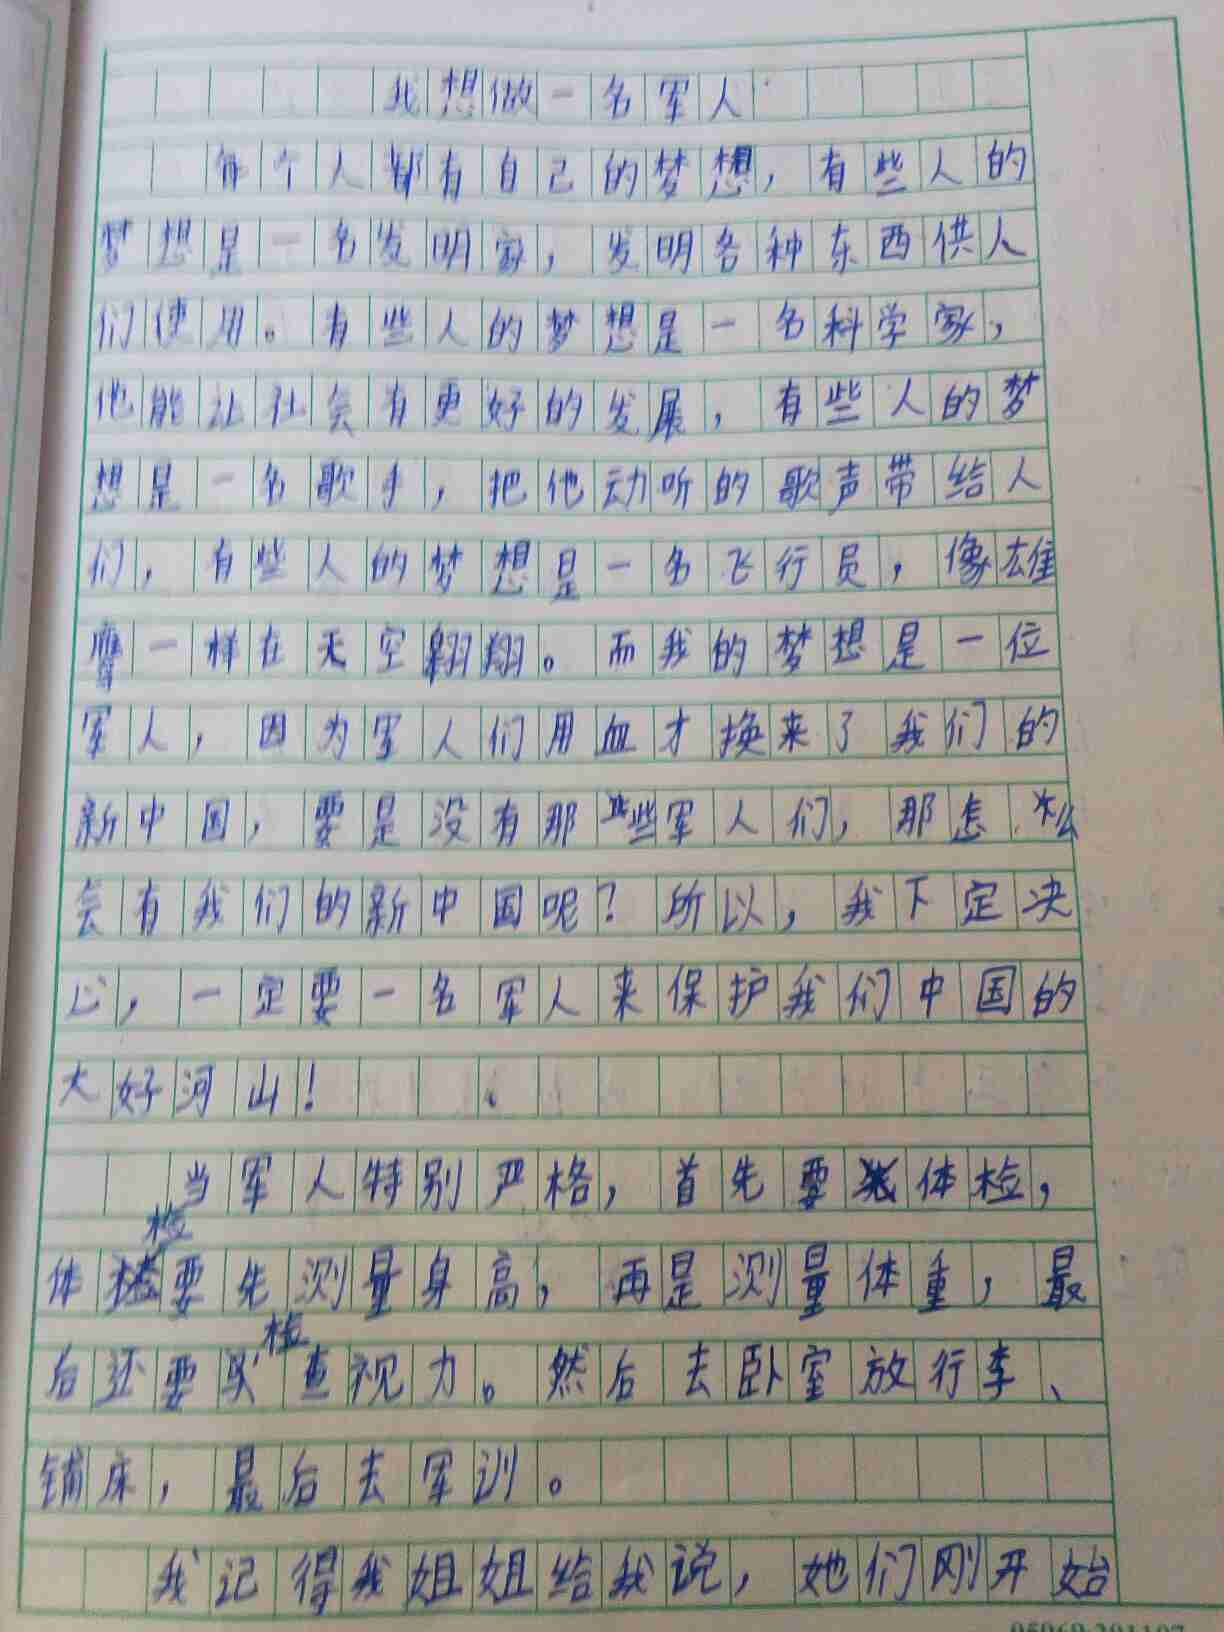 我想做一名军人
每个人都有自己的梦想，有些人的
梦想是一名发明家，发明各种东西供人
们使用。有些人的梦想是一名科学家，
他能让社会有更好的发展，有些人的梦
想是一名歌手，把他动听的歌声带给人
们，有些人的梦想是一名飞行员，像雄
鹰一样在天空翱翔。而我的梦想是一位
军人，因为军人们用血才换来了我们的
新中国，要是没有那些军人们，那怎么
会有我们的新中国呢？所以，我下定决
心，一定要一名军人来保护我们中国的
大好河山！
当军人特别严格，首先要体检，
体检要先测量身高，再是测量体重，最
后还要检查视力。然后去卧室放行李、
铺床，最后去军训。
我记得我姐姐给我说，她们刚开始